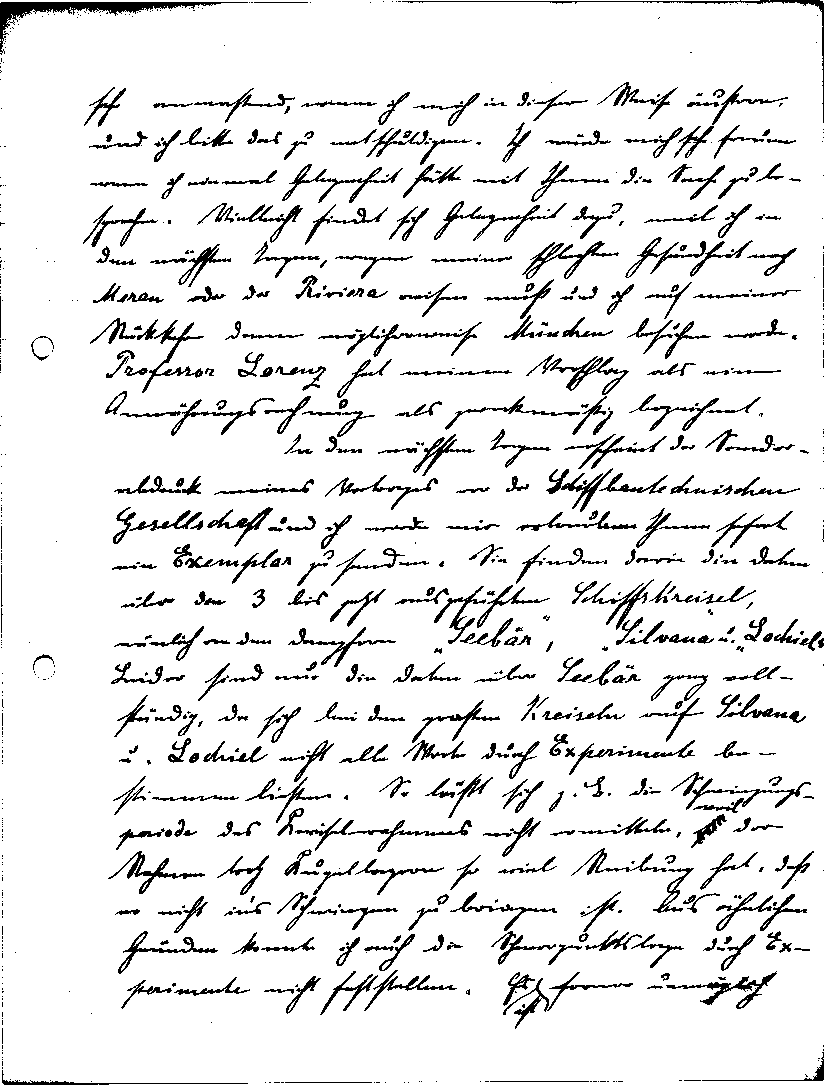 sehr anmaßend, wenn ich mich in dieser Weise äußere,
und ich bitte das zu entschuldigen. Ich würde mich sehr freuen
wenn ich einmal Gelegenheit hätte mit Ihnen die Sache zu be-
sprechen. Vielleicht findet sich Gelegenheit dazu, weil ich in
den nächsten Tagen, wegen meiner schlechten Gesundheit nach
Meran oder der Riviera reisen muß und ich auf meiner
Rückkehr dann möglicherweise München besuchen werde.
Professor Lorenz hat meinen Vorschlag als eine
Annäherungsrechnung als zweckmäßig bezeichnet.
In den nächsten Tagen erscheint der Sonder-
abdruck meines Vortrages vor der Schiffbautechnischen
Gesellschaft und ich werde mir erlauben Ihnen sofort
ein Exemplar zu senden. Sie finden darin die Daten
über den 3 bis jetzt ausgeführten Schiffskreisel,
nämlich an den Dampfern „Seebär", „Silvana u. „Lochiel"
Leider sind nur die Daten über Seebär ganz voll-
ständig, da sich bei den großen Kreiseln auf Silvana
u. Lochiel nicht alle Werte durch Experimente be-
stimmen ließen. So läßt sich z. B. die Schwingungs-
periode des Kreiselrahmens nicht ermitteln, weil der
Rahmen trotz Kugellagern so viel Reibung hat, daß
er nicht ins Schwingen zu bringen ist. Aus ähnlichen
Gründen konnte ich auch die Schwerpunktslage durch Ex-
perimente nicht feststellen. Es ist ferner unmöglich